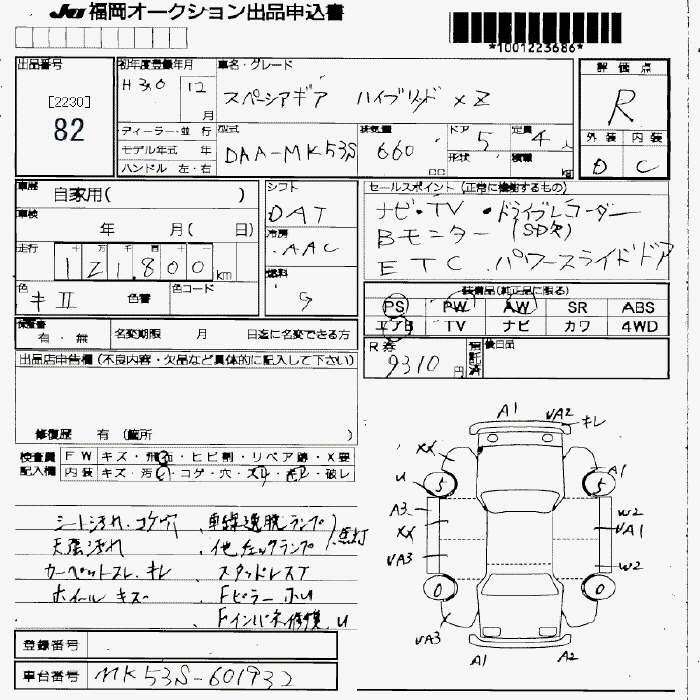 JU 福岡オークション出品申込書
*1001223686*
出品番号
[2230]
82
初年度登録年月
H30 12
月
車名・グレード
スペーシアギア ハイブリッド XZ
評価点
R
外装 内装
D C
ディーラー・並行
モデル年式 年
ハンドル 左・右
型式
DAA-MK53S
排気量
660
cc
ドア
5
形状
定員
4人
積載
kg
車歴
自家用( )
車検
年 月( 日)
走行
十 万 千 百 十
121,800km
色
キII
色替
色コード
シフト
DAT
冷房
AAC
燃料
G
セールスポイント (正常に機能するもの)
ナビ・TV ・ドライブレコーダー
Bモニター (SD欠)
ETC パワースライドドア
装備品(純正品に限る)
PS PW AW SR ABS
エアB TV ナビ カワ 4WD
保証書
有・無
名変期限 月 日迄に名変できる方
R券
9310円
預託済
後日品
出品店申告欄(不良内容・欠品など具体的に記入して下さい)
修復歴 有(箇所 )
検査員記入欄
FW キズ・飛石・ヒビ割・リペア跡・X要
内装 キズ・汚れ・コゲ・穴・スレ・キレ・破レ
シート汚れ・コゲ穴
天張汚れ
カーペットスレ・キレ
ホイールキズ
・車線逸脱ランプ
・他チェックランプ
点灯
・スタッドレスT
・Fピラー ホU
・Fインパネ修復U
A1
VA2
キレ
XX
A1
U
5
5
A3
W2
XX
VA1
VA3
W2
0
0
X
VA3
A1
A2
登録番号
車台番号 MK53S-601932